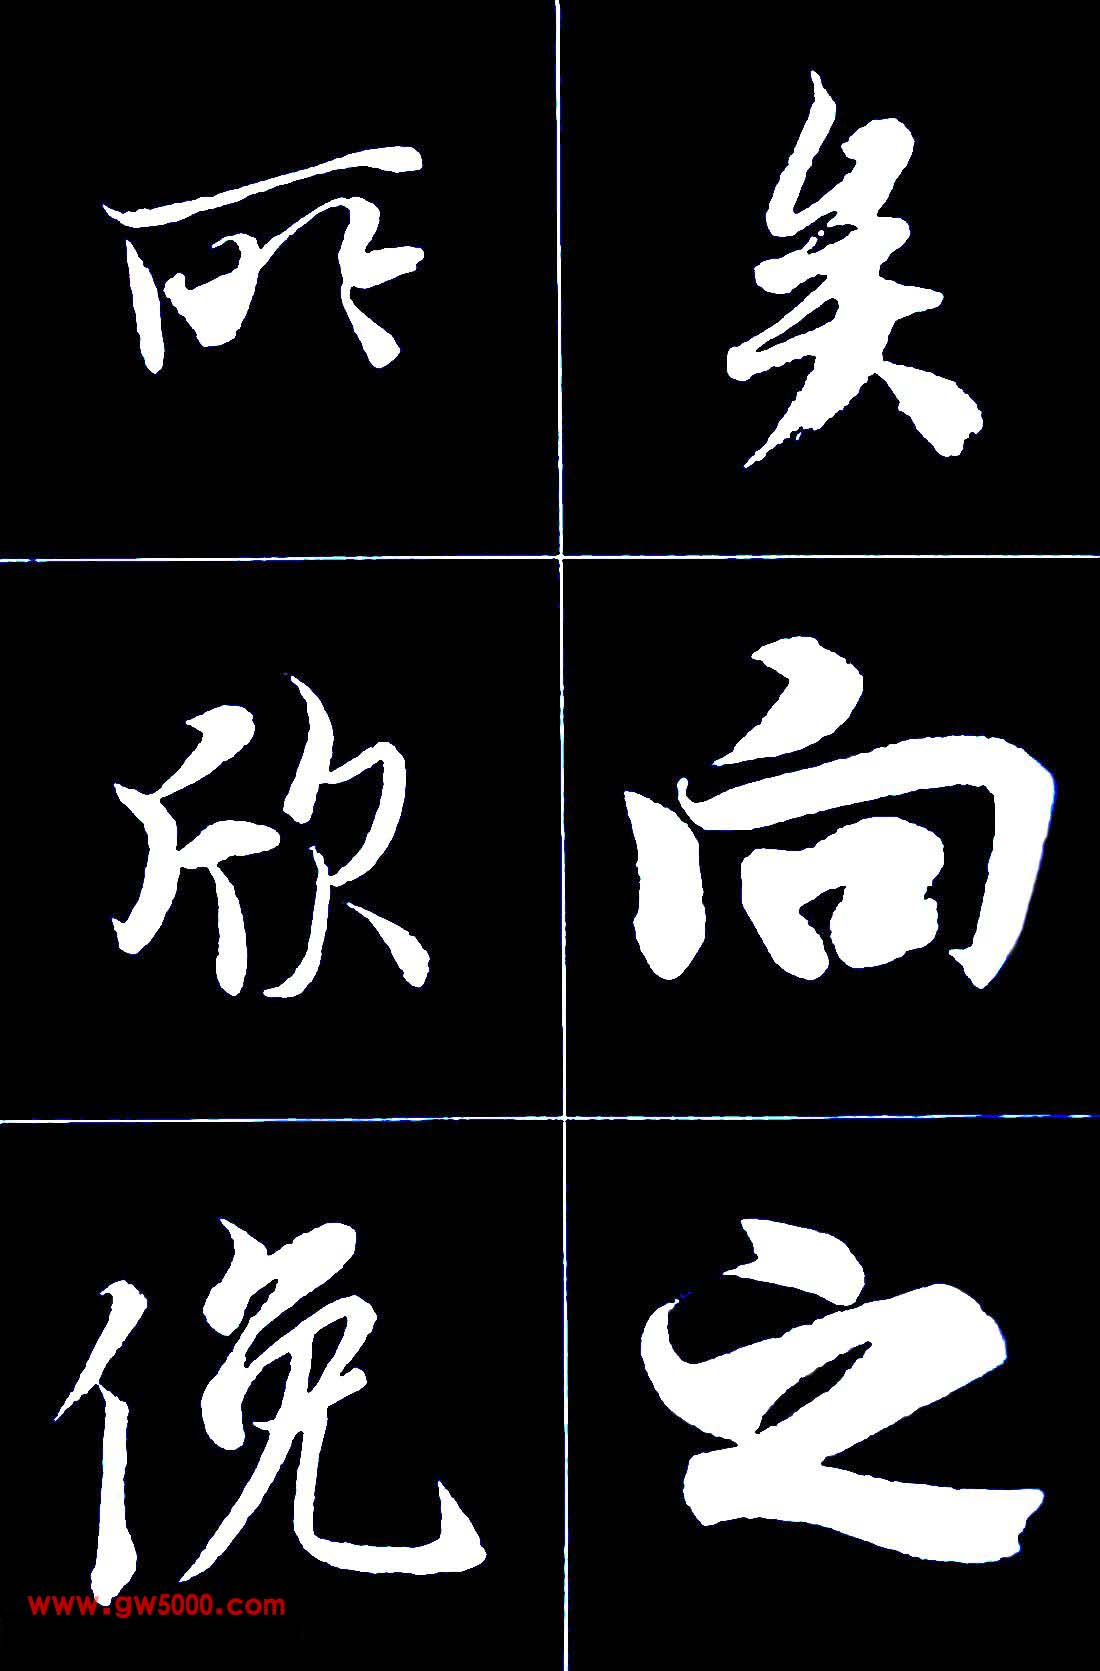 矣向之
所欣俛
www.gw5000.com